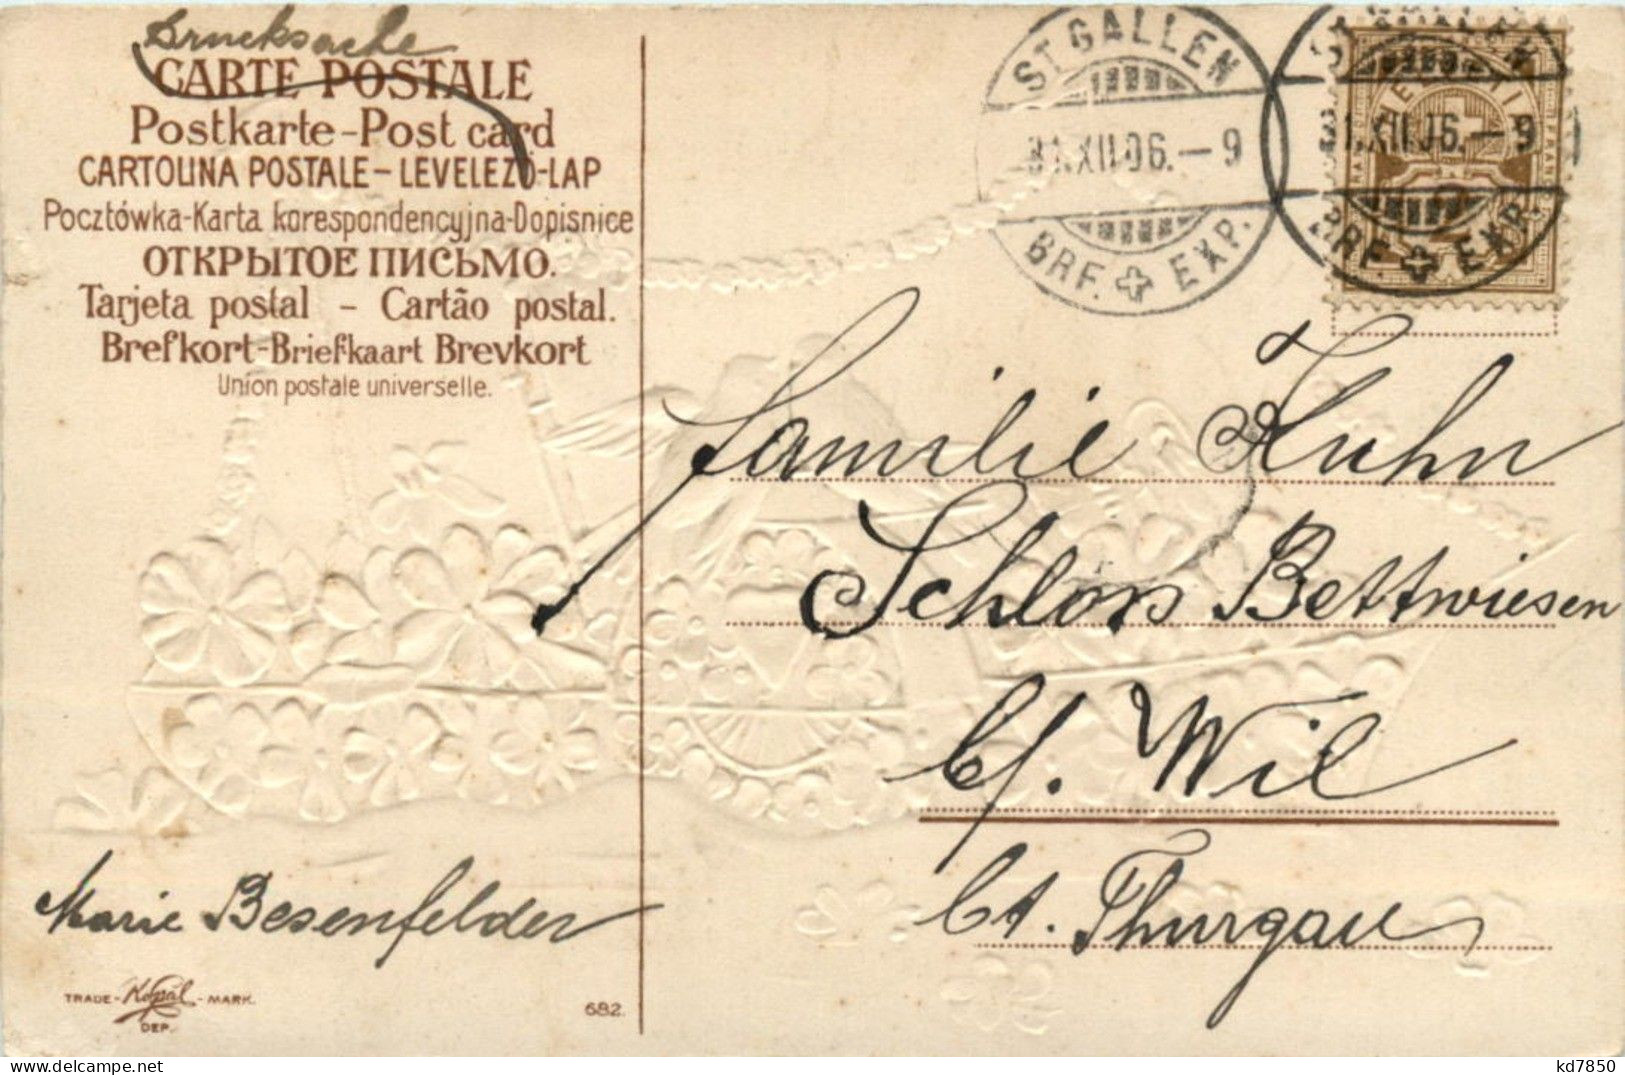 Drucksache
CARTE POSTALE
Postkarte-Post card
CARTOLINA POSTALE-LEVELEZÖ-LAP
Pocztówka-Karta korespondencyjna-Dopisnice
ОТКРЫТОЕ ПИСЬМО.
Tarjeta postal - Cartão postal.
Brefkort-Briefkaart Brevkort
Union postale universelle.
ST. GALLEN
31.XII.06.-9
BRF. EXP.
ST. GALLEN
31.XII.06.-9
BRF. EXP.
HELVETIA
FRANCO
Familie Kuhn
Schloss Bettwiesen
b/. Wil
Ct. Thurgau
Marie Besenfelder
TRADE-Kopal-MARK.
DEP.
682.
kd7850